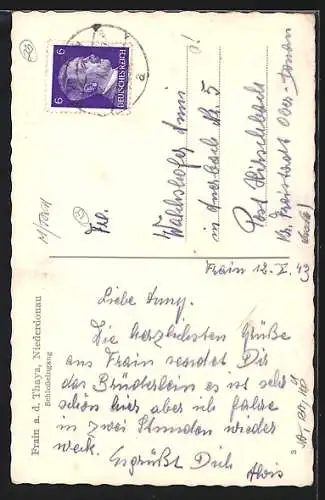 6 6
DEUTSCHES REICH
Frl.
in
Nr. 5
Post
Kr. Freistadt Ober-Donau
Frain 12. X. 43
Liebe
Die herzlichsten Grüße
aus Frain sendet Dir
das Brüderlein es ist sehr
schön hier aber ich fahre
in zwei Stunden wieder
weck.
Es grüßt Dich
Alois
Frain a. d. Thaya, Niederdonau
Schloßeingang